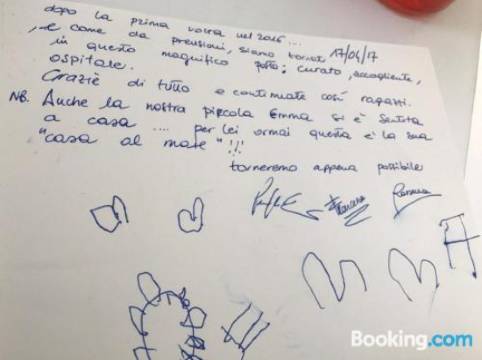 dopo la prima volta nel 2016...
17/04/17
, e come da previsioni, siamo tornati
in questo magnifico posto; curato, accogliente,
ospitale.
Grazie di tutto e continuate così ragazzi.
NB. Anche la nostra piccola Emma si è sentita
a casa .... per lei ormai questa è la sua
"casa al mare"!!!
torneremo appena possibile
Booking.com